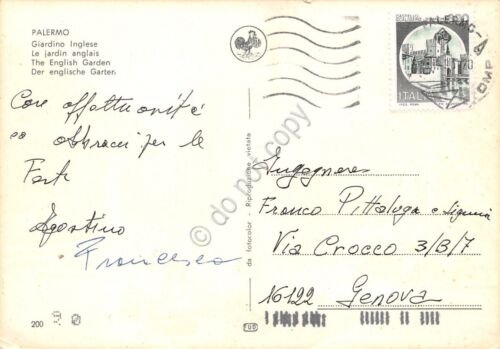 PALERMO
Giardino Inglese
Le jardin anglais
The English Garden
Der englische Garten
Care affettuosità
ed abbracci per le
Feste
Agostino
Francesca
200
da fotocolor - Riproduzione vietata
do not copy
ITALIA
Ingegnere
Franco Pittaluga e Signora
Via Crocco 3/B/7
16122 Genova